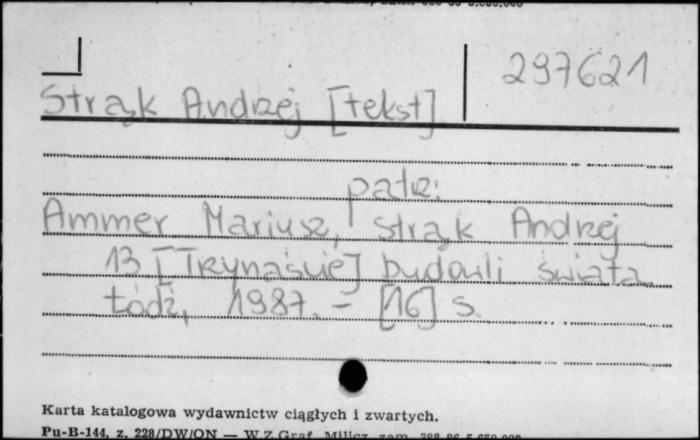 297621
Strąk Andrzej [tekst]
patrz:
Ammer Mariusz, Strąk Andrzej
13 [Trzynaście] budowli świata
Łódź, 1987. - [16] s.
Karta katalogowa wydawnictw ciągłych i zwartych.
Pu-B-144, z. 228/DW/ON — W.Z.Graf. Milicz, zam.